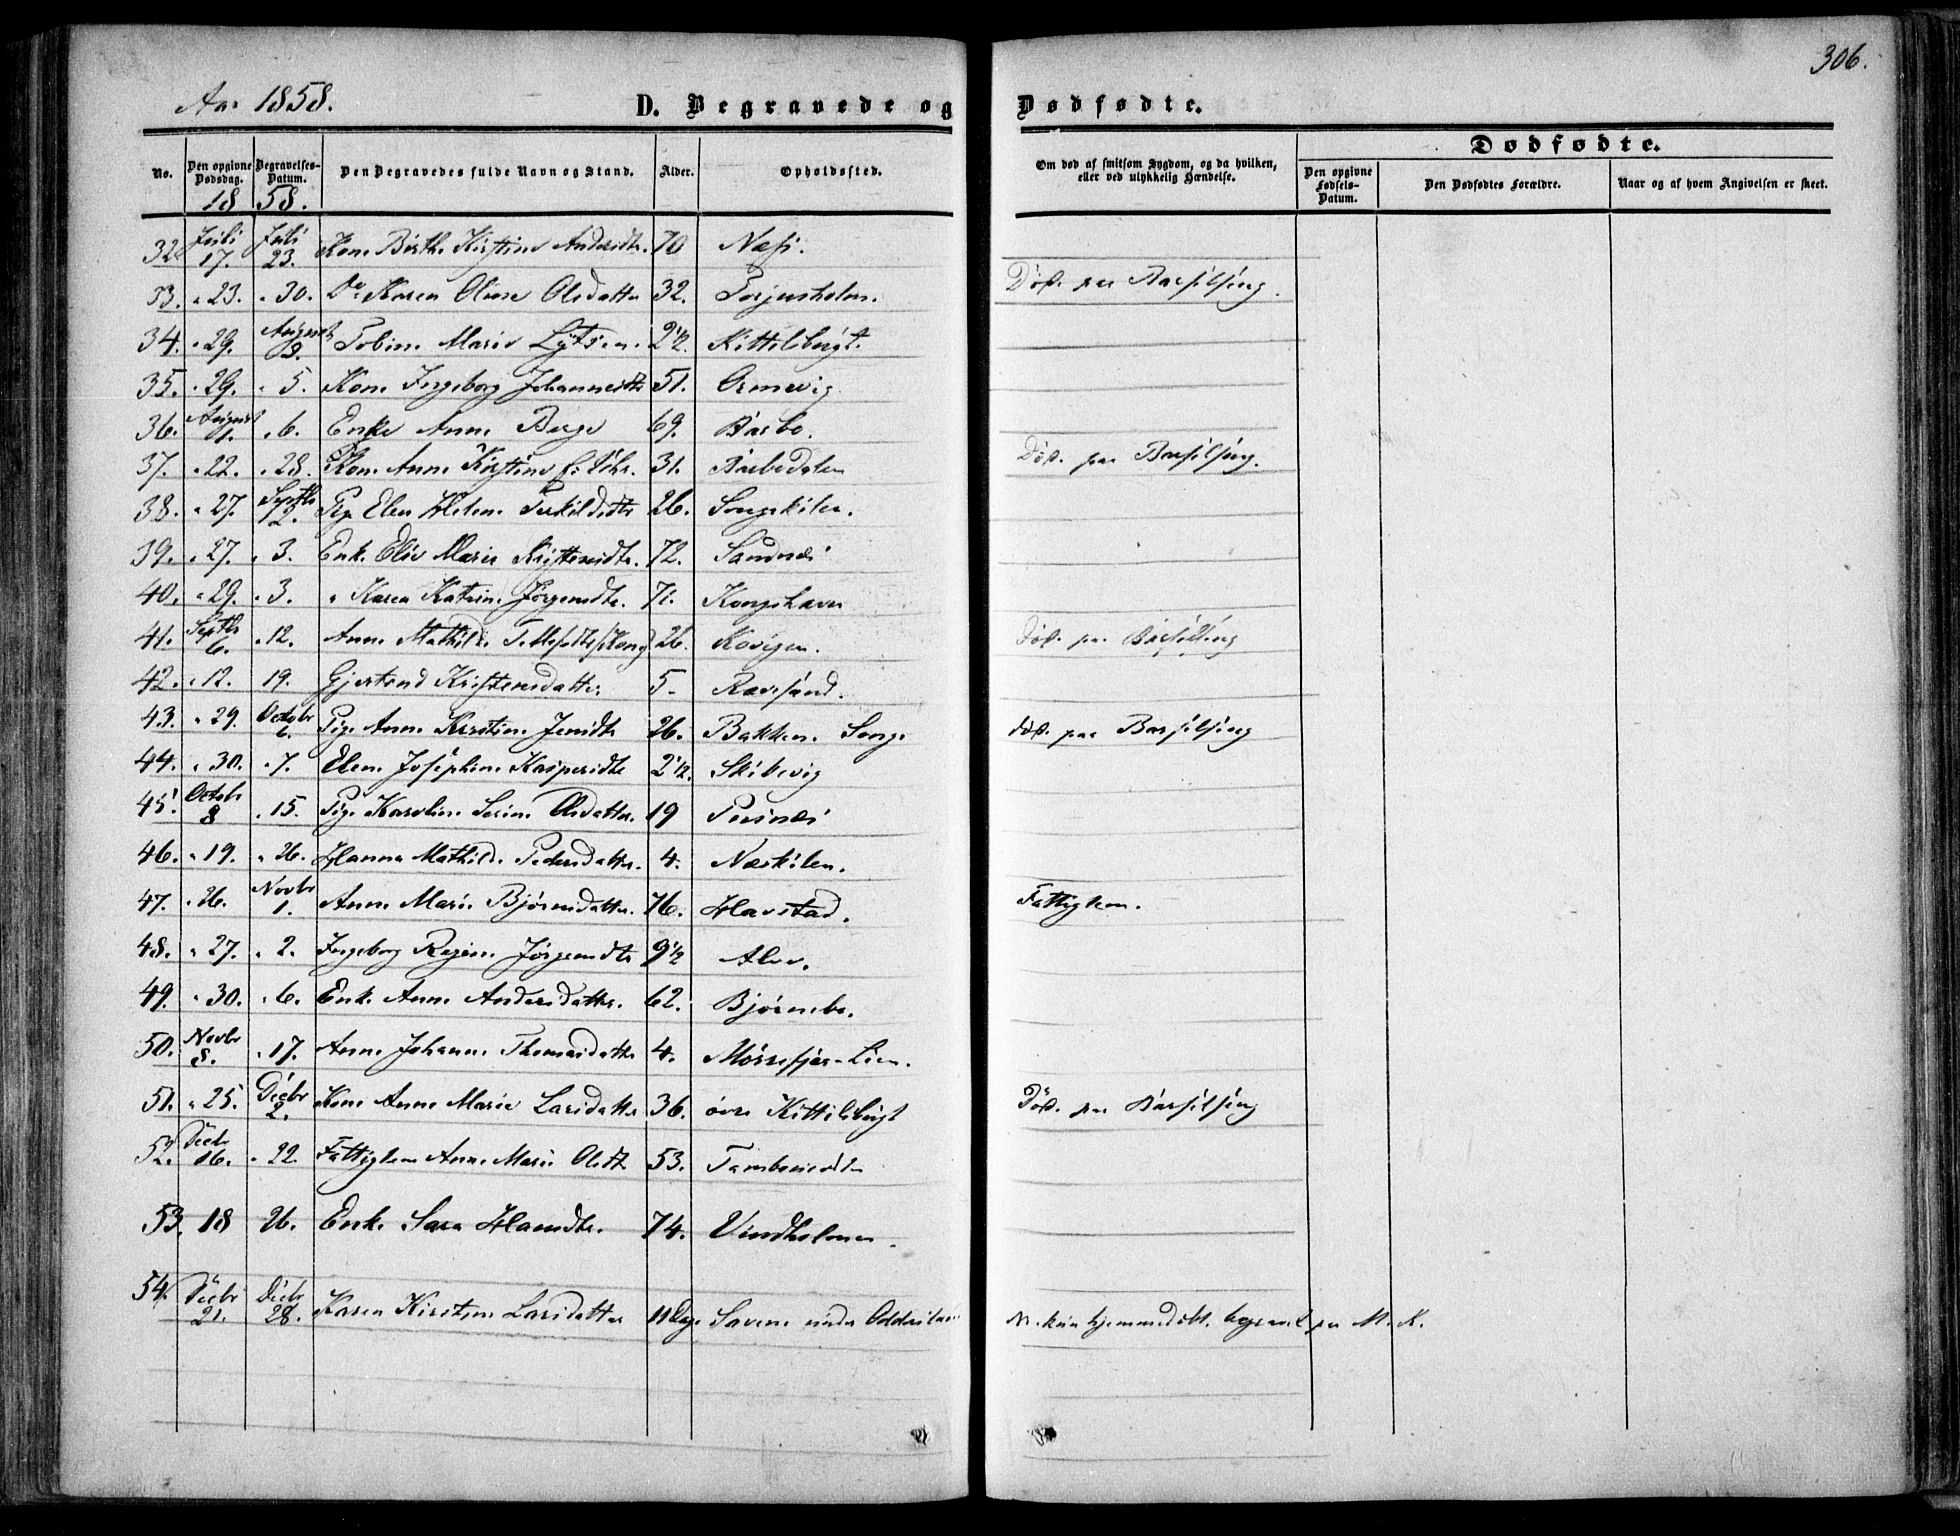 306.
Aar 1858.
D. Begravede og Dødfødte.
Dødfødte.
No. Den opgivne Dødsdag. Begravelses-Datum. Den Begravedes fulde Navn og Stand. Alder. Opholdssted. Om død af smitsom Sygdom, og da hvilken, eller ved ulykkelig Hændelse. Den opgivne Fødsels-Datum. Den Dødfødtes Forældre. Naar og af hvem Angivelsen er skeet.
18 58.
32 Juli 17. Juli 23. Kone Birthe Kirstine Andersdtr. 70 Næs.
33. " 23. " 30. Do Karen Oline Olsdatter 32. Torjusholm. Død paa Barselseng.
34. " 29. August 3. Tobine Marie 2 1/2. Kittilsbugt.
35. " 29. " 5. Kone Ingeborg Johannesdtr 51. Arnevig.
36. August 1. " 6. Enke Anne Berge 69. Barbo.
37. " 22. " 28. Kone Anne Kirstine 31. Barbodalen Død paa Barselseng.
38. " 27. Septbr 2. Pige Elen Helene Terkildsdtr 26. Songekilen.
39. " 27. " 3. Enke Marie 72. Sandnæs
40. " 29. " 3. " Karen Katrine Jørgensdtr. 71. Kongshavn
41. Septbr 6. " 12. Anne Mathilde 26. Død paa Barselseng
42. " 12. 19. Gjertend Kristensdatter 5 - Ravesand.
43. " 29. Octobr 6. Pige Anne Kirstine Jensdtr 26. Bakken Songe død paa Barselseng
44. " 30. " 7. Elen Josephine Kaspersdtr 2 1/2. Skibevig
45. Octobr 8 " 15. Pige Karoline Serine Olsdatter. 19
46. " 19. " 26. Hanna Mathilde Pedersdatter. 4. Næskilen.
47. " 26. Novbr 1. Anne Marie Bjørnsdatter. 76. Havstad. Fattiglem.
48. " 27. " 2. Ingeborg Regine Jørgensdtr 9 1/2 Alve.
49. " 30. " 6. Enke Anne Andersdatter. 62. Bjørnebo.
50. Novbr 8. " 17. Anne Johanne Thomasdatter 4. Mørefjær-Lien.
51. " 25. Decbr 2. Kone Anne Marie Larsdatter 36. øvre Kittilsbugt Død paa Barselseng
52. Decbr 16. " 22. Fattiglem Anne Marie Olsdt 53.
53. 18 26. Enke Sara Hansdtr. 74. Vindholmen.
54. Decbr 21. Decbr 28. Karen Kirstine Larsdatter 11 Dage Savene under hjemmedøbt. begravet paa M. K.